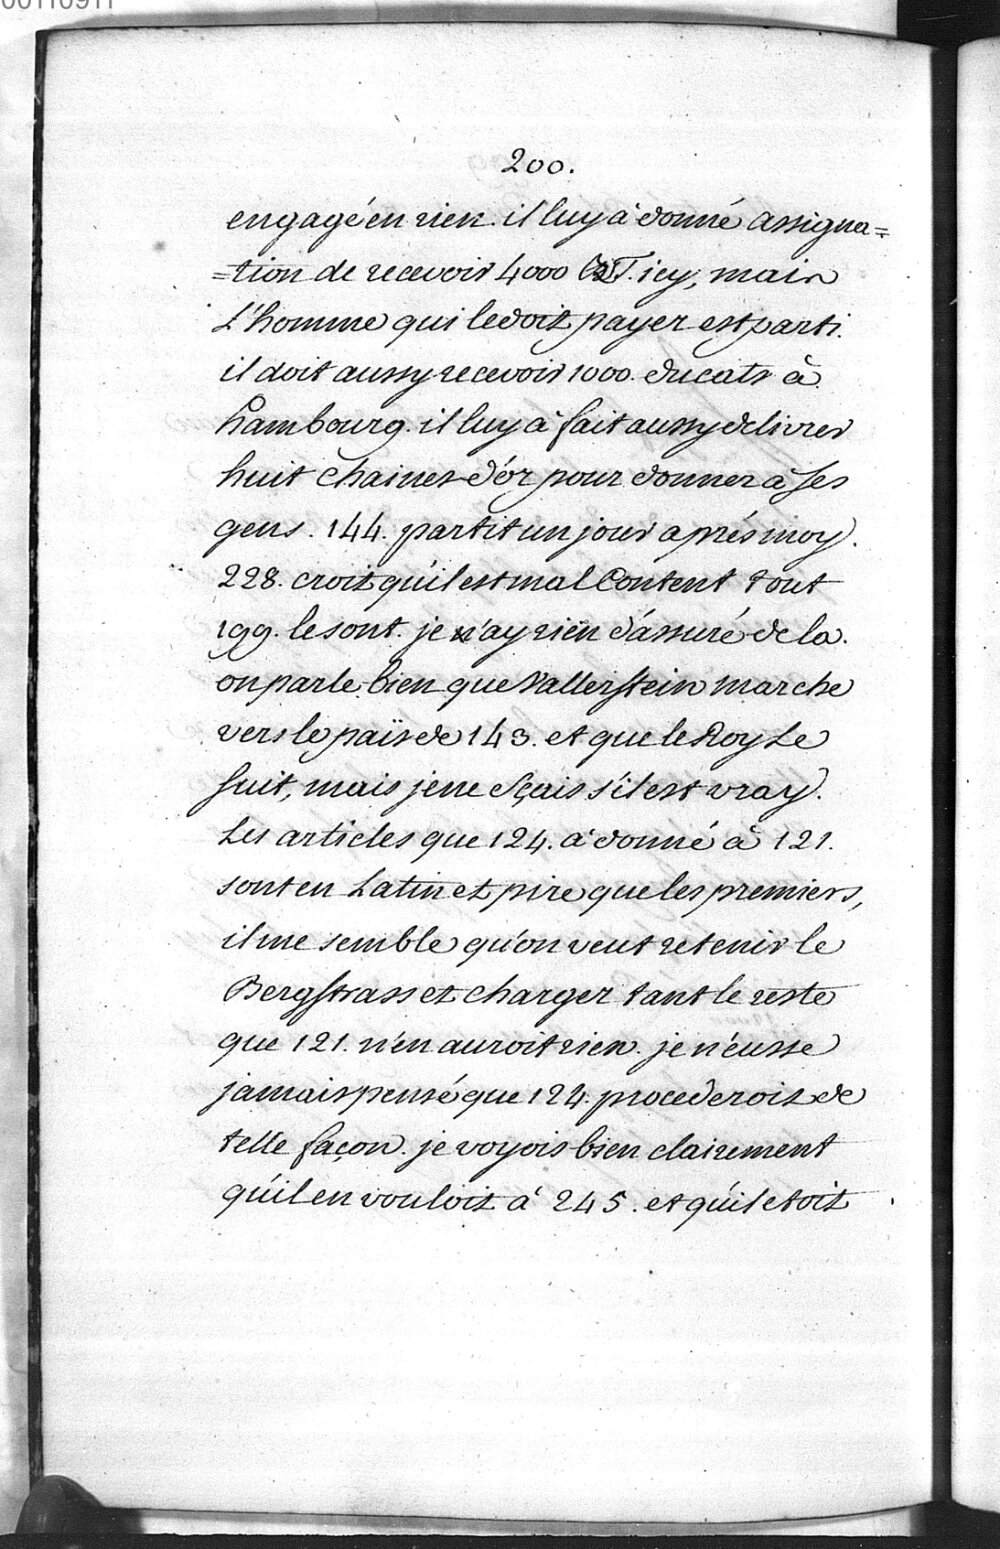 200.
engagé en rien. il luy à donné assigna=
=tion de recevoir 4000 icy, mais
L'homme qui le doit payer est parti.
il doit aussy recevoir 1000. ducats à
hambourg. il luy à fait aussy delivrer
huit chaines d'or pour donner à ses
gens. 144. partit un jour aprés moy.
228. croit qu'il est mal Content tout
199. le sont. je n'ay rien d'assuré de la.
on parle bien que Vallerstein marche
vers le païs de 143. et que le Roy Le
suit, mais je ne sçais s'il est vray.
Les articles que 124. a donné à 121.
sont en Latin et pire que les premiers,
il me semble qu'on veut retenir le
Bergstrass et charger tant le reste
que 121. n'en auroit rien. je n'eusse
jamais pensé que 124. procederoit de
telle façon. je voyois bien clairement
qu'il en vouloit à 245. et qu'il etoit